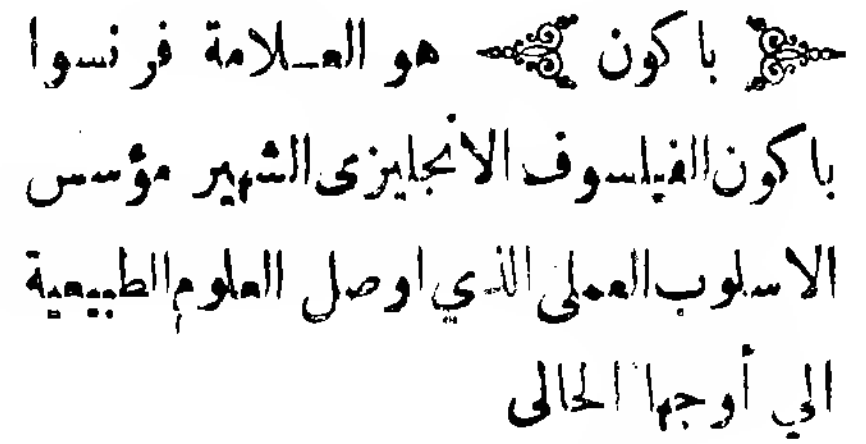 باكون هو العلامة فرنسوا
باكون الفيلسوف الانجليزى الشهير مؤسس
الاسلوب العملى الذي اوصل العلوم الطبيعية
الي أوجها الحالى